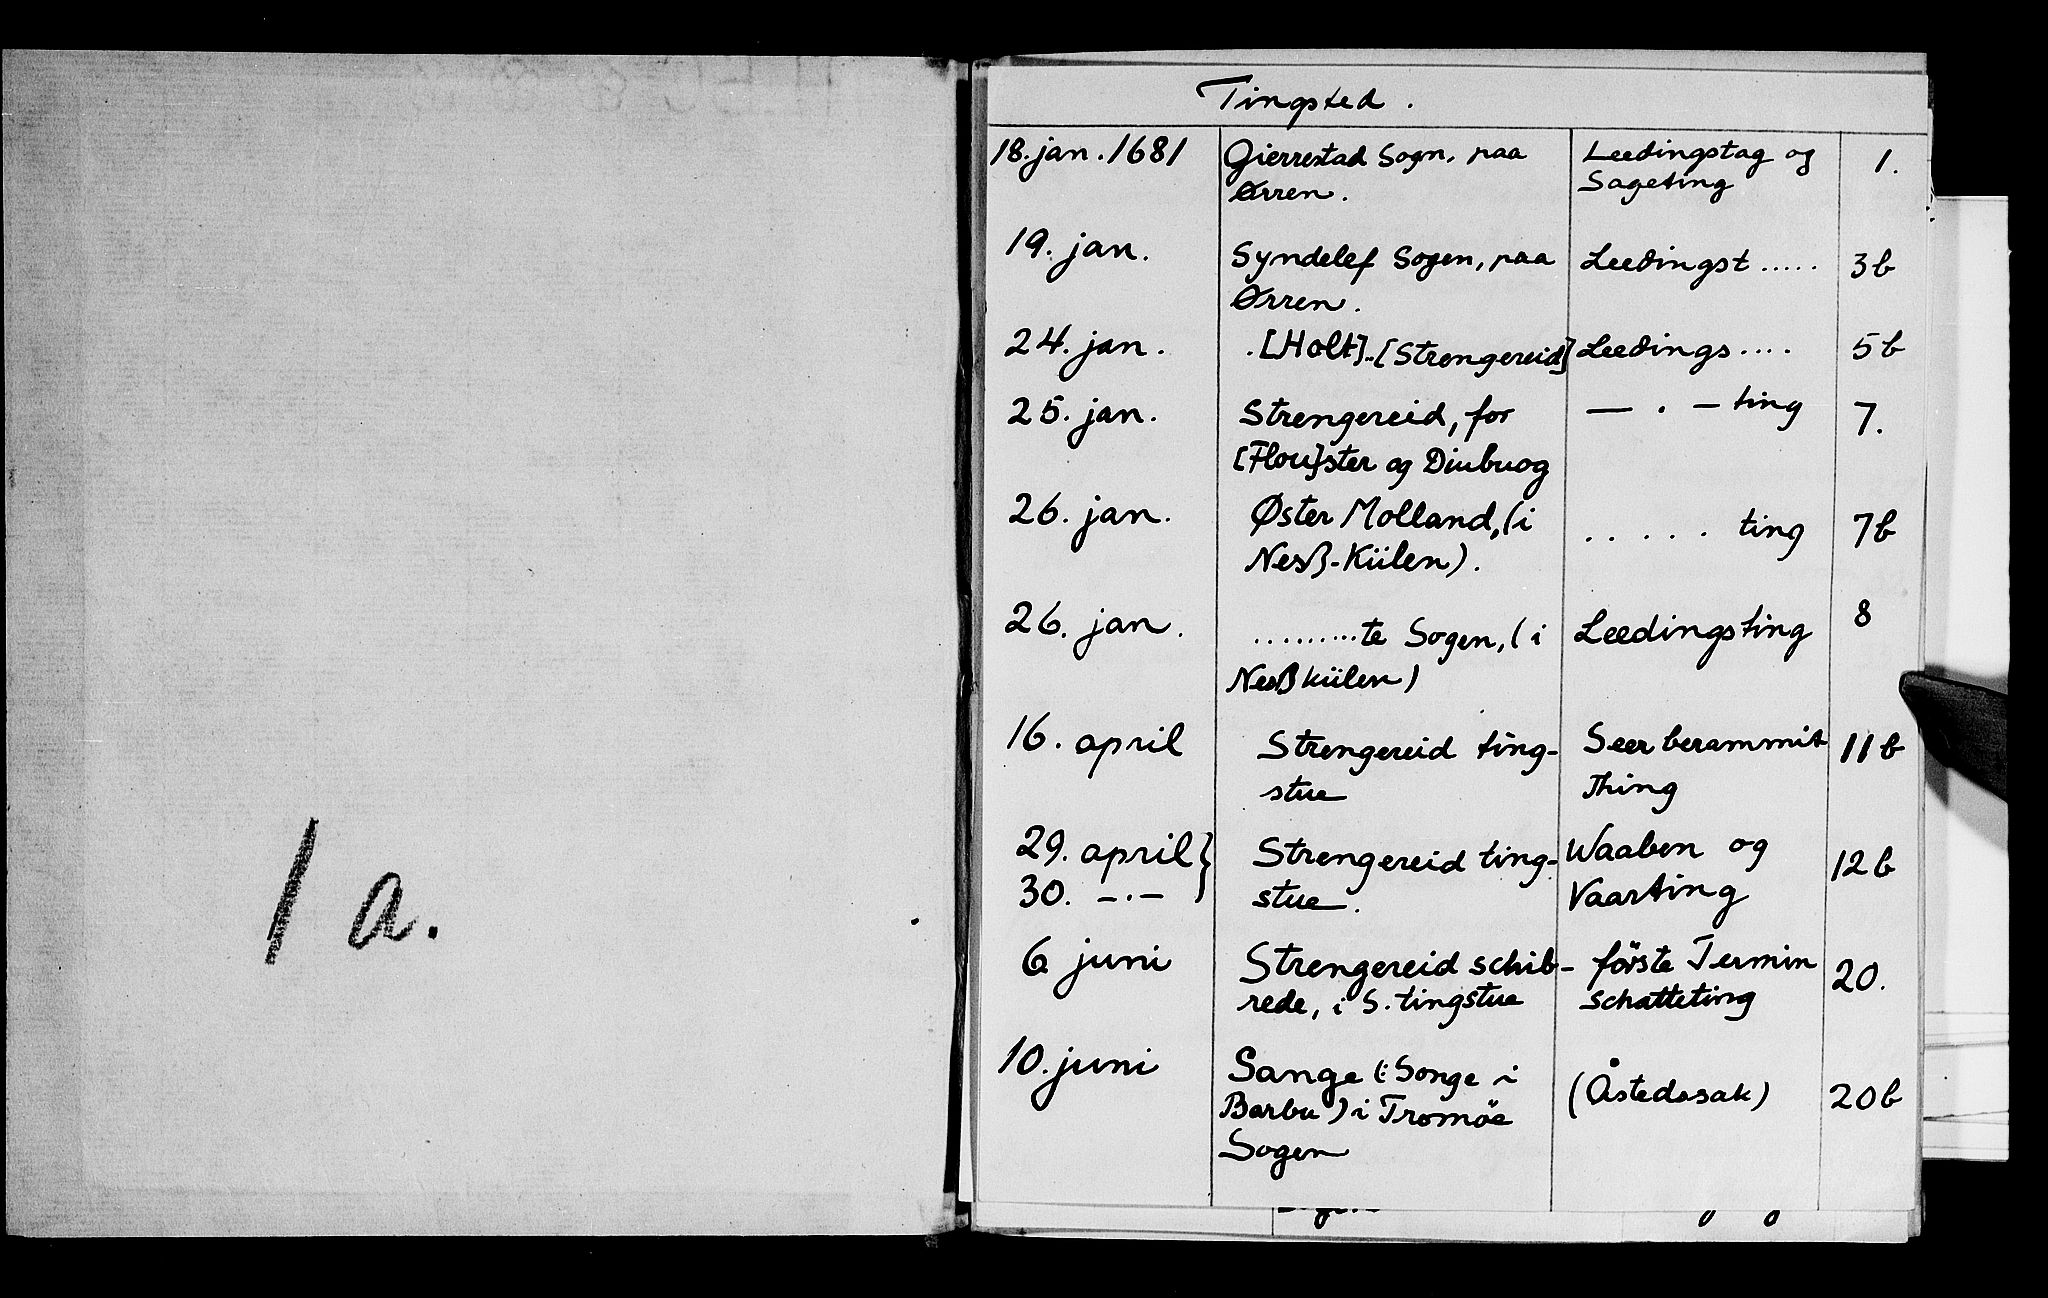 1 a.
Tingsted.
18. jan. 1681 Gierrestad Sogn, paa Leedingstag og 1.
Ørren. Sageting
19. jan. Syndelef Sogen, paa Leedingst ..... 3b
Ørren.
24. jan. .[Holt]..[Strengereid] Leedings .... 5b
25. jan. Strengereid, for — . — ting 7.
[Flou]ster og Diubuog
26. jan. Øster Molland, (i ..... ting 7b
Nesß-Kiilen).
26. jan. .........te Sogen, (i Leedingsting 8
Nesßkiilen)
16. april Strengereid ting- Seer berammit 11b
stue Thing
29. april } Strengereid ting- Waaben og 12b
30. —.— stue. Vaarting
6 juni Strengereid schib- förste Termin 20.
rede, i S. tingstue schatteting
10. juni Sange (: Songe i (Åstedssak) 20b
Barbu) i Tromöe
Sogen